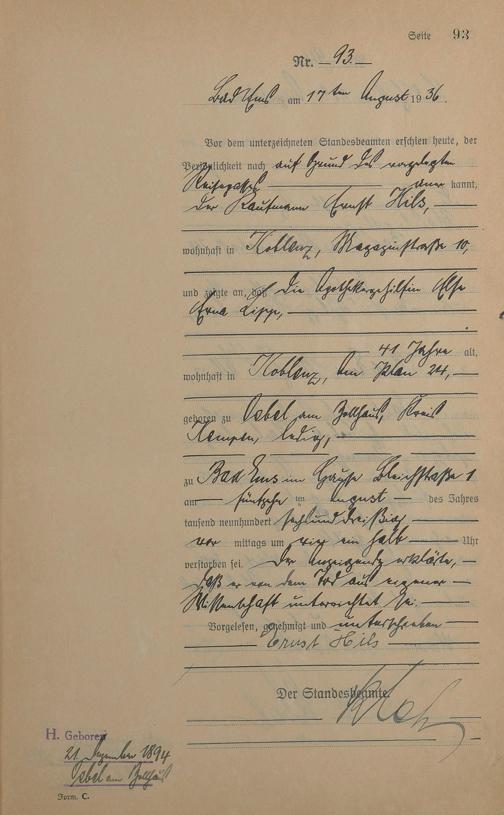 Seite 93
Nr. 93.
Bad Ems am 17ten August 1936.
Vor dem unterzeichneten Standesbeamten erschien heute, der
Persönlichkeit nach auf Grund des vorgelegten
Reisepasses kannt,
der Kaufmann Ernst Hils,
wohnhaft in Koblenz, Magazinstraße 10,
und zeigte an, daß die Apothekergehilfin Else
Erna Lippe,
41 Jahre alt,
wohnhaft in Koblenz, Am Plan 24,
geboren zu Oebel am Zollhaus, Kreis
Kempen, ledig,
zu Bad Ems im Hause Bleichstraße 1
am fünfzehn ten August des Jahres
tausend neunhundert sechsunddreißig
vor mittags um ein halb Uhr
verstorben sei. Der Anzeigende erklärte,
daß er von dem Tod aus eigener
Wissenschaft unterrichtet sei.
Vorgelesen, genehmigt und unterschrieben
Ernst Hils
Der Standesbeamte.
H. Geboren
21. Dezember 1894
Oebel am Zollhaus
Form. C.